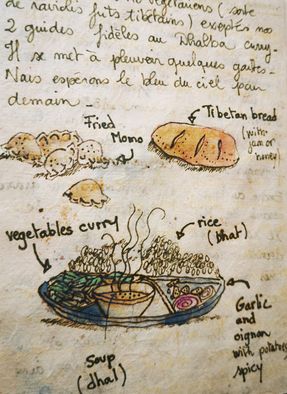 végétariens (sorte
de raviolis frits tibétains) exceptés nos
2 guides fidèles au Dhalba curry.
Il se met à pleuvoir quelques gouttes.
Nous espérons le bleu du ciel pour
demain.
Fried
Momo
Tibetan bread
(with
jam or
honey)
vegetables curry
rice
(bhat)
Garlic
and
oignon
with potatoes
spicy
Soup
(dhal)